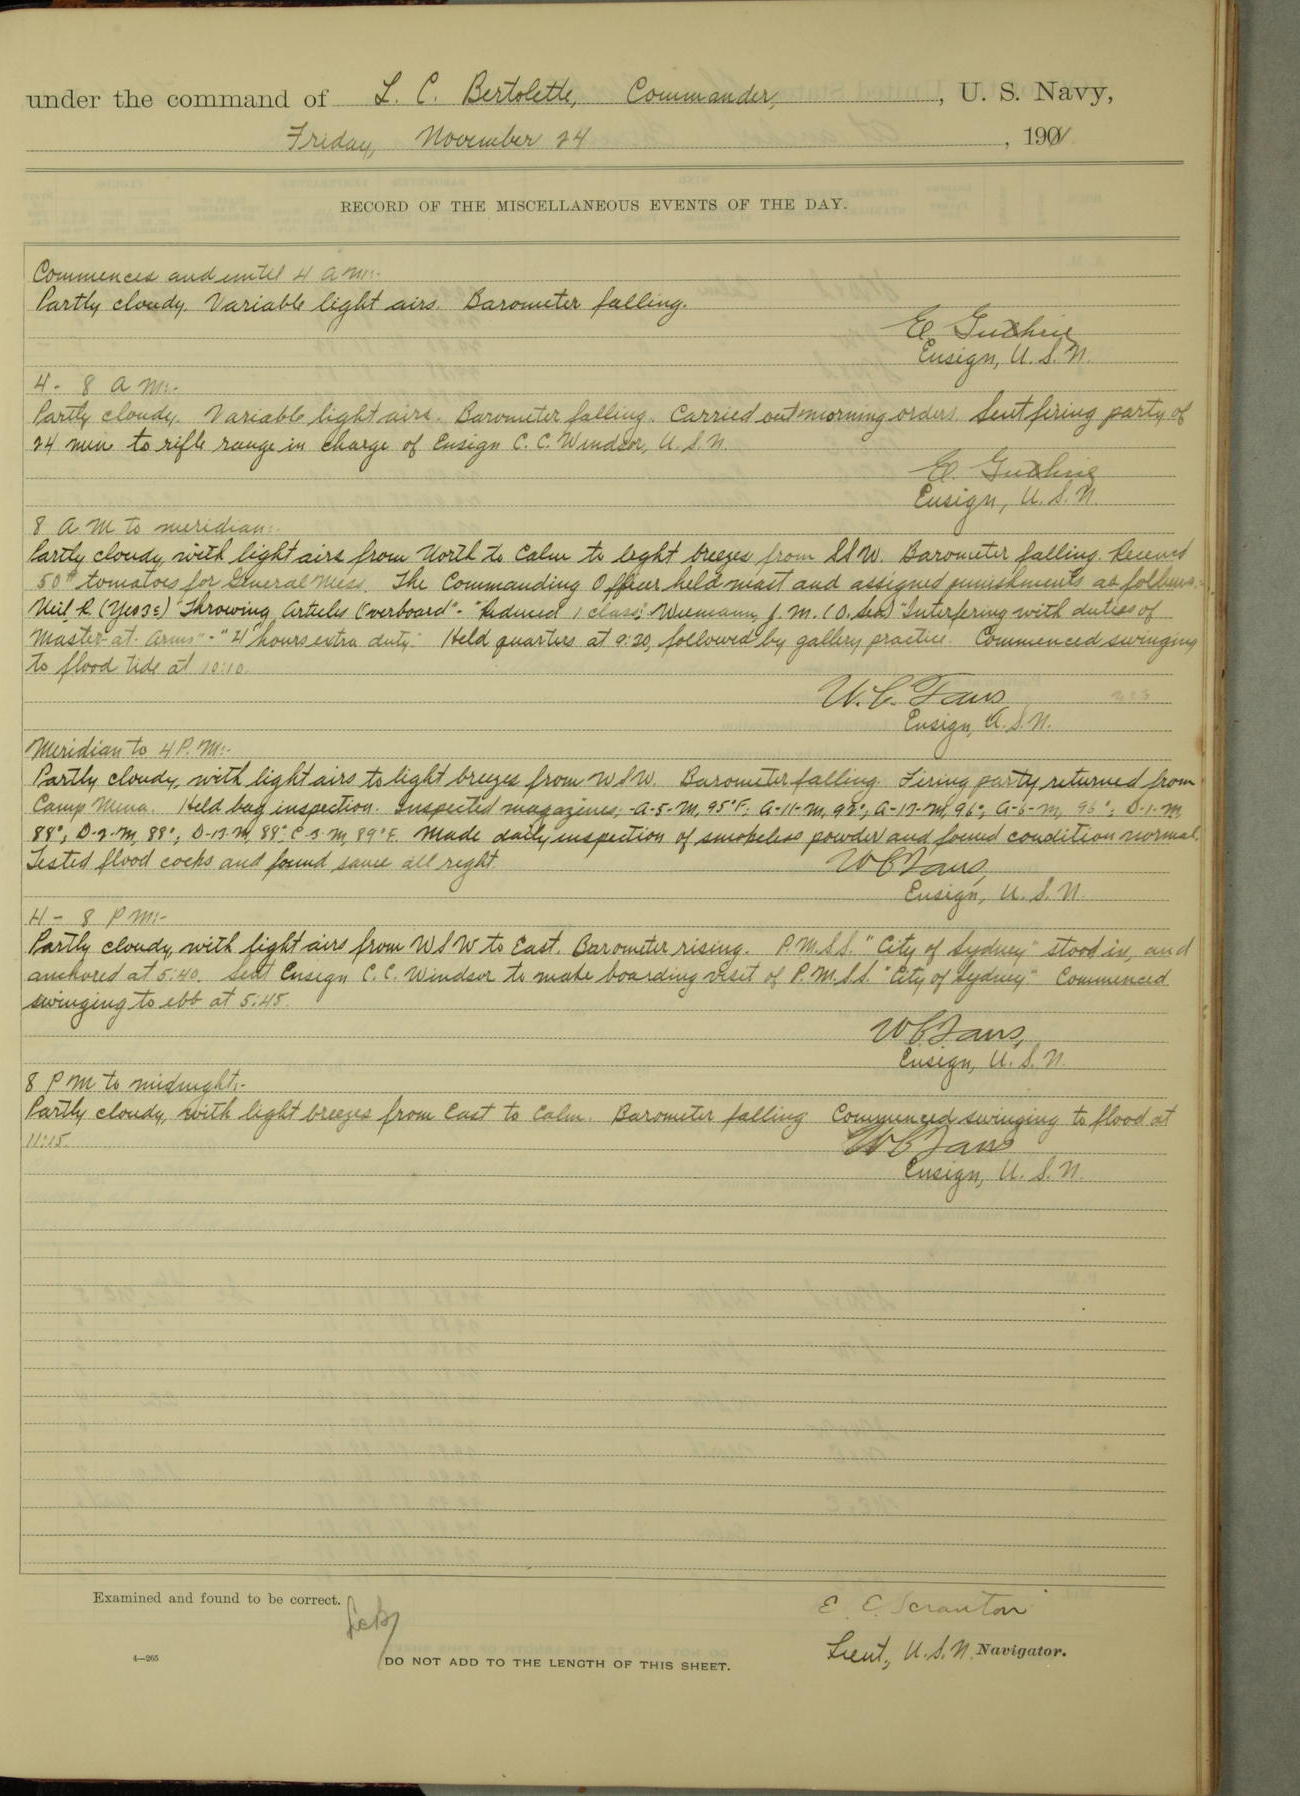 under the command of L. C. Bertolette, Commander, , U. S. Navy,
Friday, November 24 , 191
RECORD OF THE MISCELLANEOUS EVENTS OF THE DAY.
Commences and until 4 A.M:-
Partly cloudy. Variable light airs. Barometer falling.
E Guthrie
Ensign, U. S. N.
4 - 8 A M:-
Partly cloudy. Variable light airs. Barometer falling. Carried out morning orders. Sent firing party of
24 men to rifle range in charge of Ensign C. C. Windsor, U. S. N.
E. Guthrie
Ensign, U. S. N.
8 A M to meridian:-
Partly cloudy, with light airs from North to Calm to light breezes from SSW. Barometer falling. Received
50# tomatoes for General Mess. The Commanding Officer held mast and assigned punishments as follows:-
Neil R (Yeo 3c) "Throwing Articles Overboard" - "Reduced 1 class"; Wiemann J. M. (O. Sea) "Interfering with duties of
Master-at-Arms" - "4 hours extra duty." Held quarters at 9:20, followed by gallery practice. Commenced swinging
to flood tide at 10:10.
Ensign, U. S. N.
Meridian to 4 P. M:-
Partly cloudy, with light airs to light breezes from WSW. Barometer falling. Firing party returned from
Camp Mena. Held bag inspection. Inspected magazines:- A-5-M, 95°F; A-11-M, 98°; A-17-M, 96°; A-6-M, 96°; D-1-M,
88°; D-2-M, 88°; D-13-M, 88°; C-3-M, 89°F. Made daily inspection of smokeless powder and found condition normal.
Tested flood cocks and found same all right.
Ensign, U. S. N.
4 - 8 P M:-
Partly cloudy, with light airs from WSW to East. Barometer rising. P.M.S.S. "City of Sydney" stood in, and
anchored at 5:40. Sent Ensign C. C. Windsor to make boarding visit of P.M.S.S. "City of Sydney." Commenced
swinging to ebb at 5:45.
Ensign, U. S. N.
8 P M to midnight:-
Partly cloudy, with light breezes from East to Calm. Barometer falling Commenced swinging to flood at
11:15.
Ensign, U. S. N.
Examined and found to be correct.
LCB
E. C. Scranton
Lieut, U. S. N. Navigator.
4—265
DO NOT ADD TO THE LENGTH OF THIS SHEET.